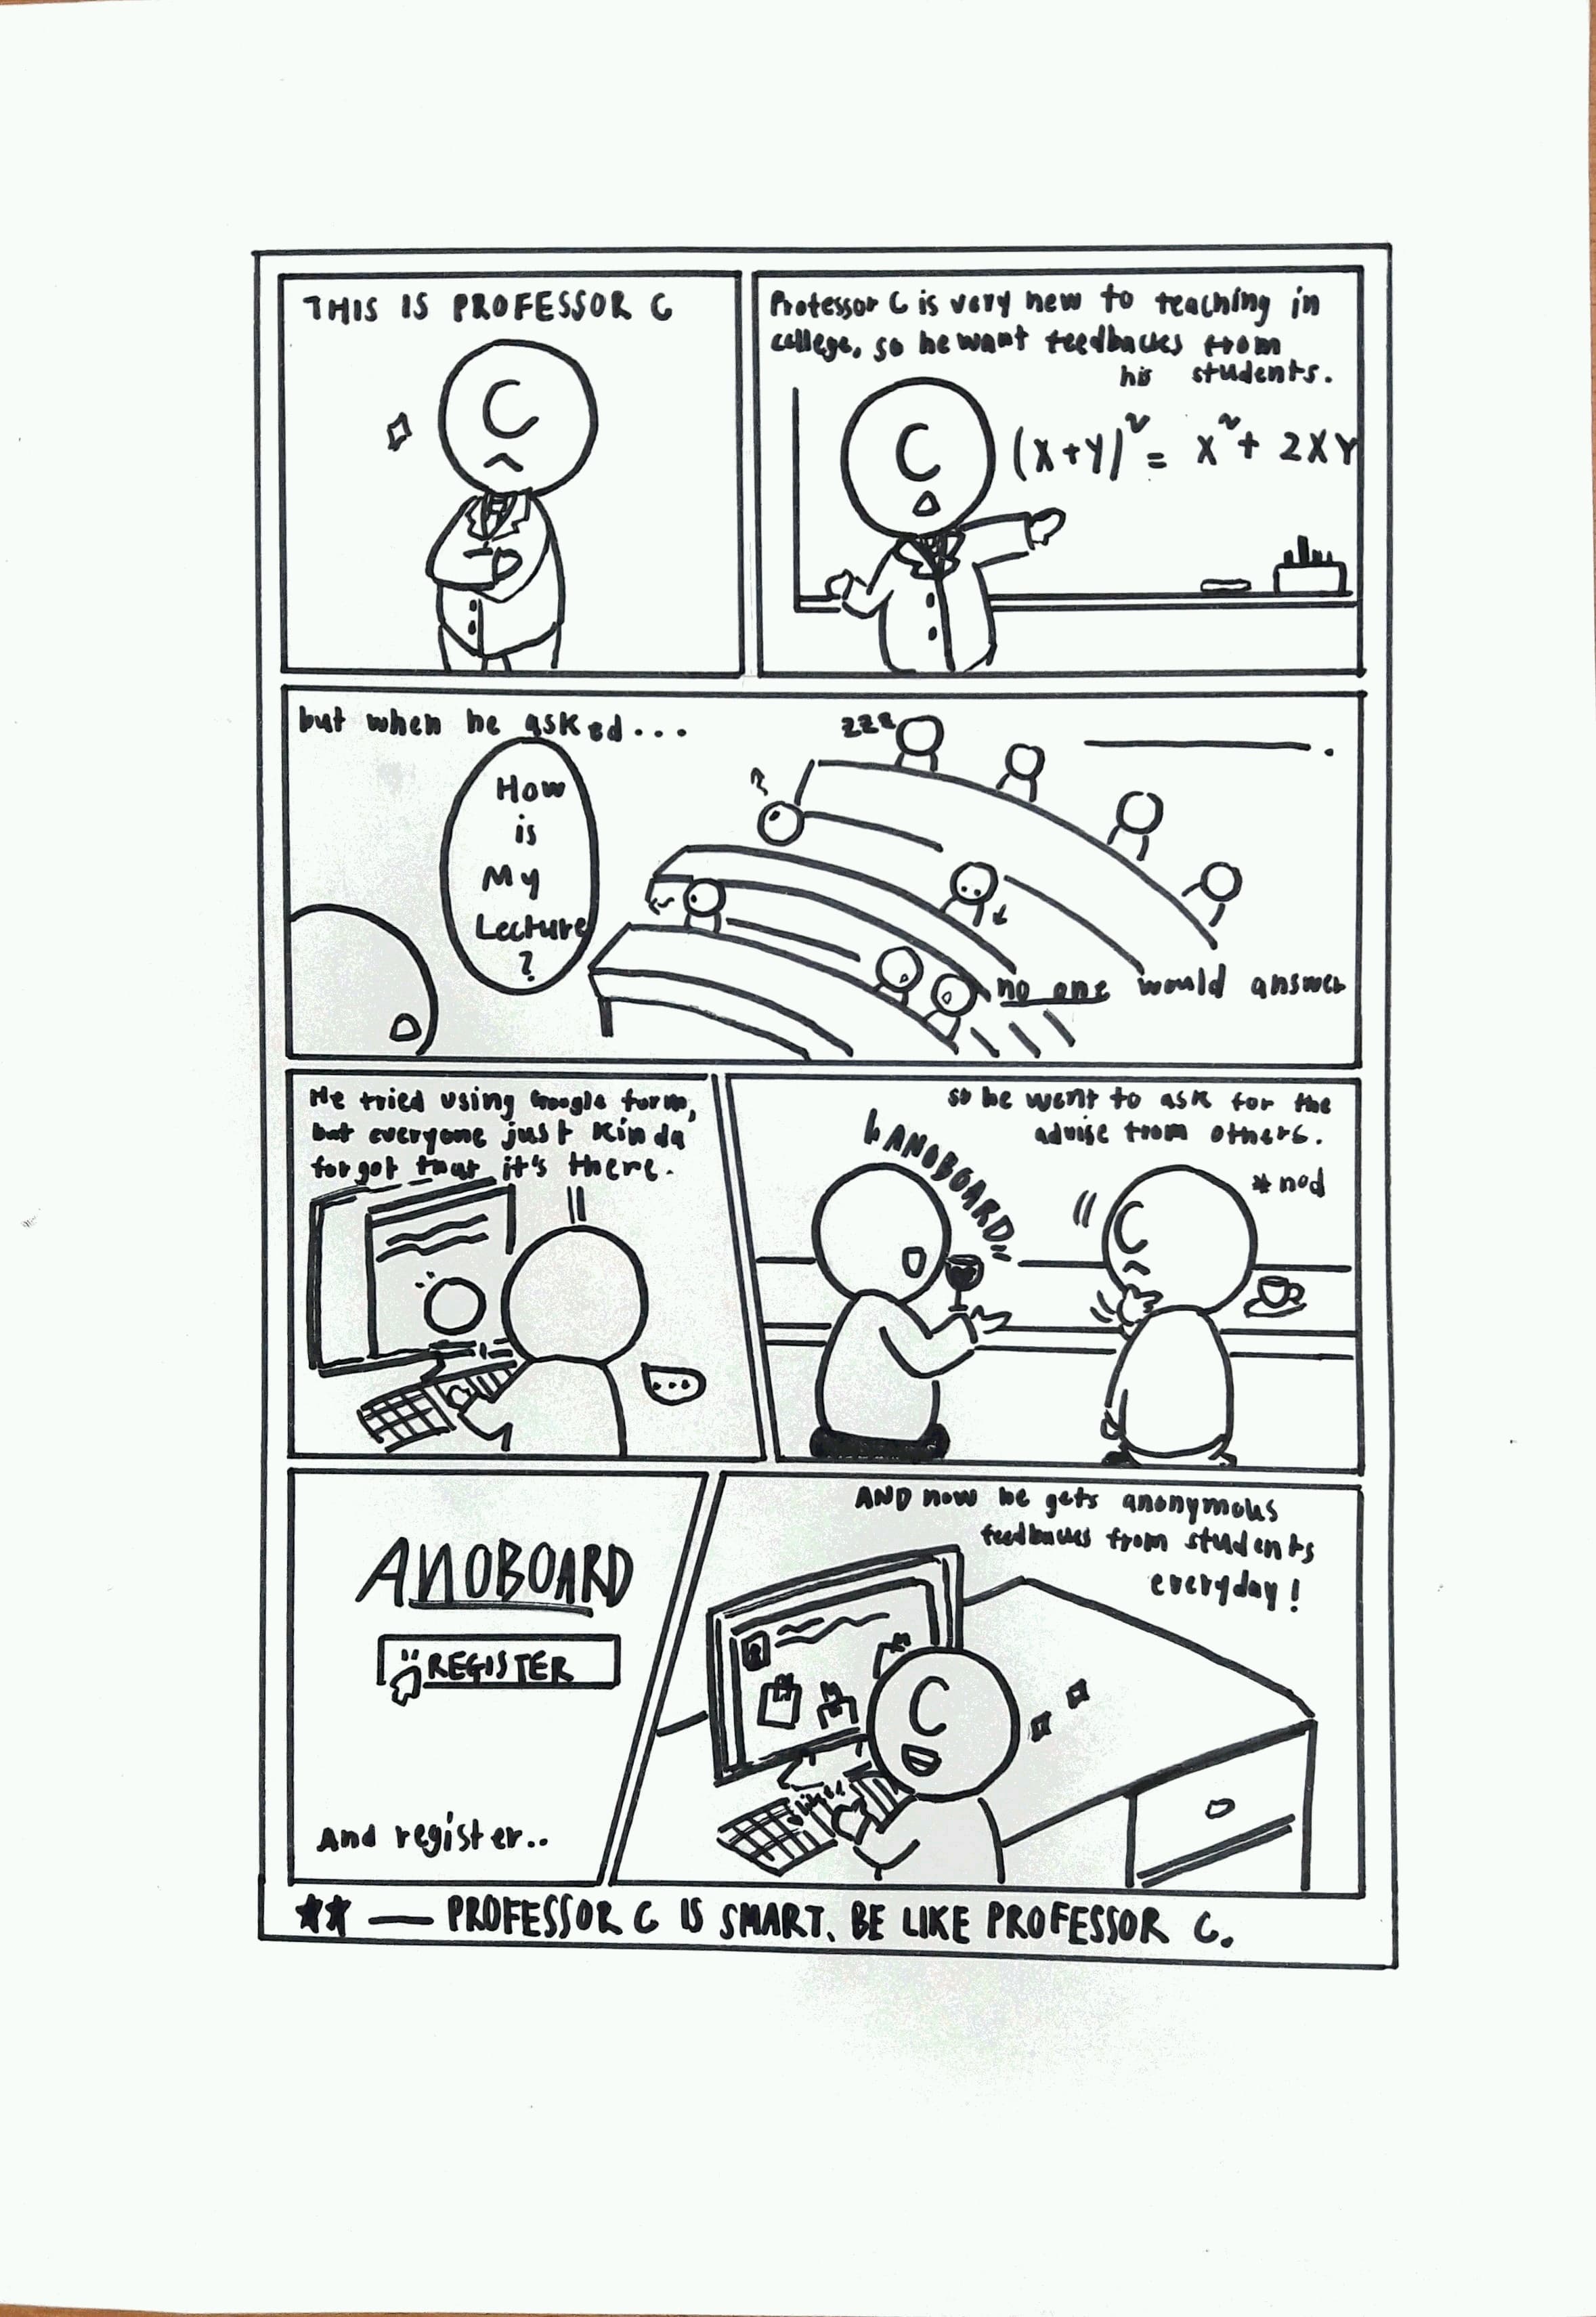 THIS IS PROFESSOR C
C
Professor C is very new to teaching in
college, so he want feedbacks from
his students.
C
(X+Y)² = X² + 2XY
but when he asked...
zzz
?
How
is
My
Lecture
?
no one would answer
He tried using Google form,
but everyone just kinda
forgot that it's there.
...
so he went to ask for the
advise from others.
ANOBOARD
* nod
C
ANOBOARD
REGISTER
And register..
AND now he gets anonymous
feedbacks from students
everyday!
C
★★ — PROFESSOR C IS SMART. BE LIKE PROFESSOR C.